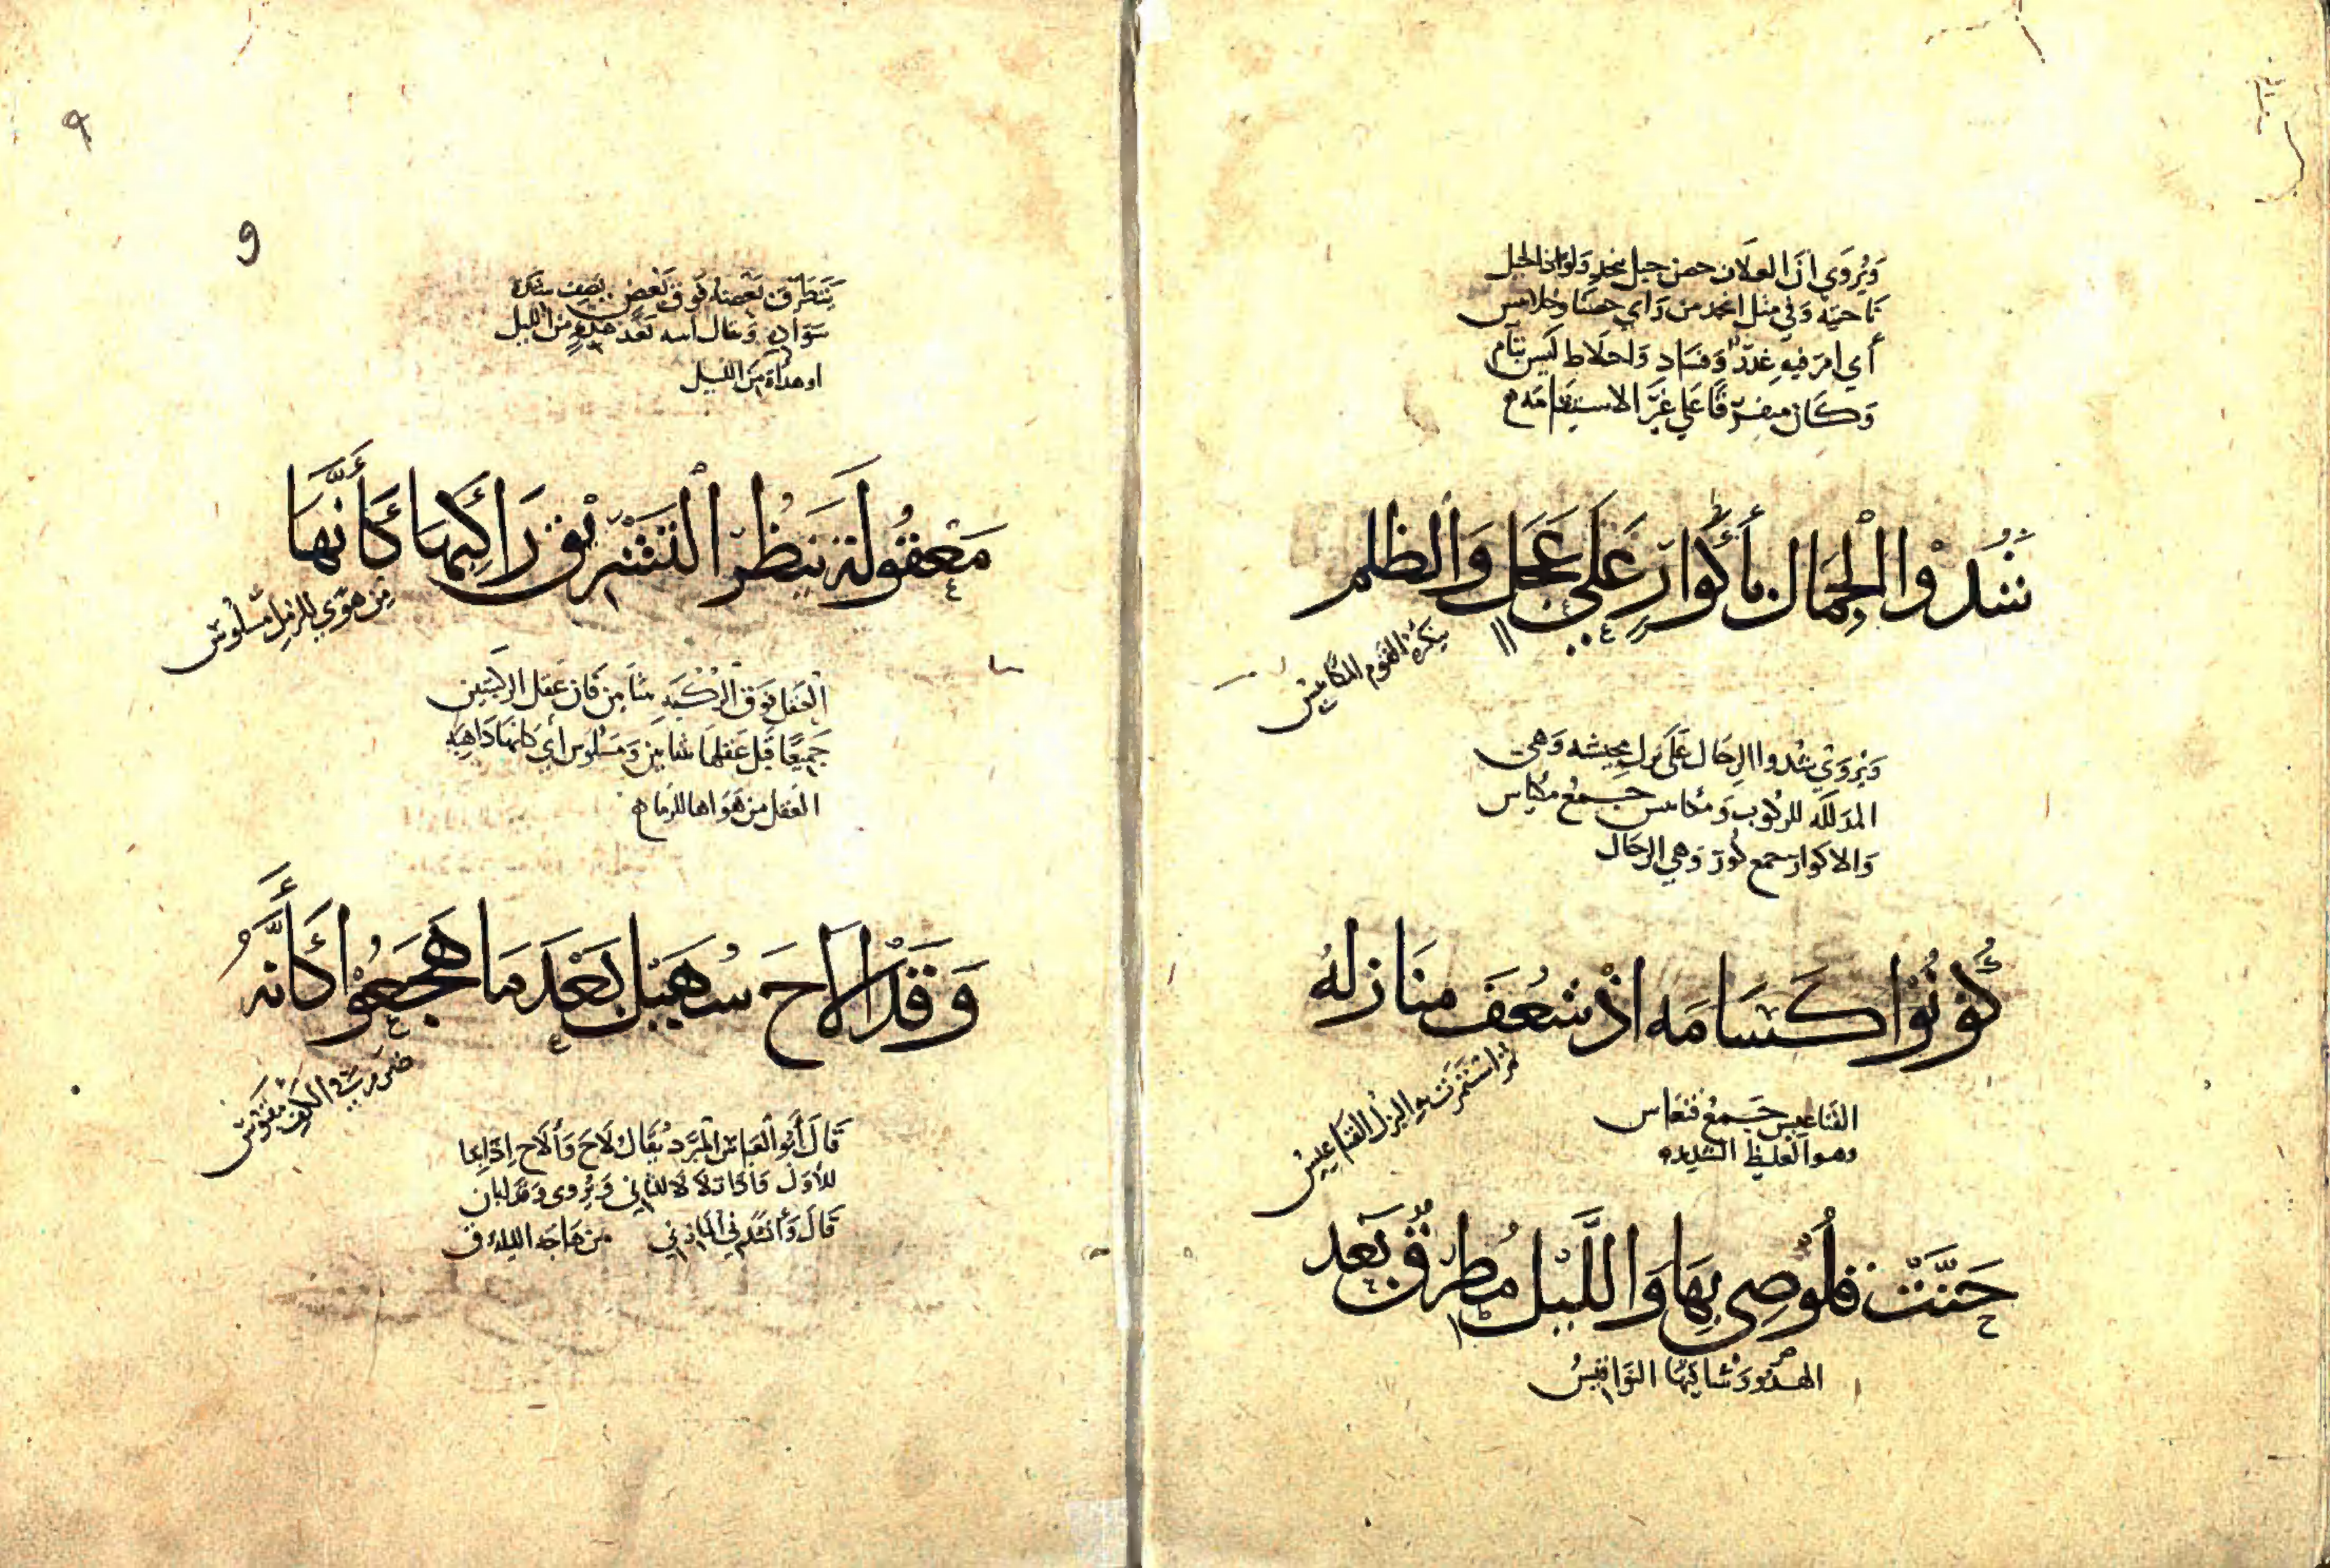 وَيُروَي ان العلان حضن جبل بنجد ولواذ الجبل
ناحيته وفي مثل انجد من راي حضنا وخلابيس
أي امر فيه غدر وفساد واخلاط ليس بتام
وكان متفرقا علي غير الاستقامة
شُدُّوا الْجِمَالَ بأَكْوَارٍ عَلَي عَجَلٍ وَالظلم
ينكره القوم المكاييس
ويروي شدوا الرحال علي بزل مخيسه وهي
المذلله للركوب ومكاييس جمع مكياس
والاكوار جمع كور وهي الرحال
كُونُوْا كَسَامَه اذْ شَعَف مَنَازله
ثم استمرت به البزل القناعيس
القناعيس جمع قنعاس
وهو الغليظ الشديد
حَنَّتْ قَلُوْصِي بِهَا وَاللَّيْل مُطَّرِقٌ بَعْد
الهدو وشاقتها النواقيس
٩
9
يتطرق بعضه فوق بعض يصف شدة
سواده وقال انه بعد هدء من الليل
او هداة من الليل
مَعْقُولَة يَنْظُر التَشْرِيْق رَاكِبهَا كَأَنَّهَا
مِن هَوًى للرمل مسلوس
العقل فوق الركبه ثنا من فان عقل الركبتين
جميعا قيل عقلها بثنايين ومسلوس أي كانها ذاهبه
العقل من هواها للرمل
وَقَدْ الَاحَ سُهَيْل بَعْدَ مَا هَجَعُوْا كَأَنَّهُ
ضرم في الكف مقبوس
قَالَ أَبُو الْعَبَاس المبَرَّد يُقَال لَاحَ وَأَلَاح اذا
للأول فاذا تلالا للثاني ويروى وقد لبان
قَالَ وَأنشدني المازني من هاجه الليله